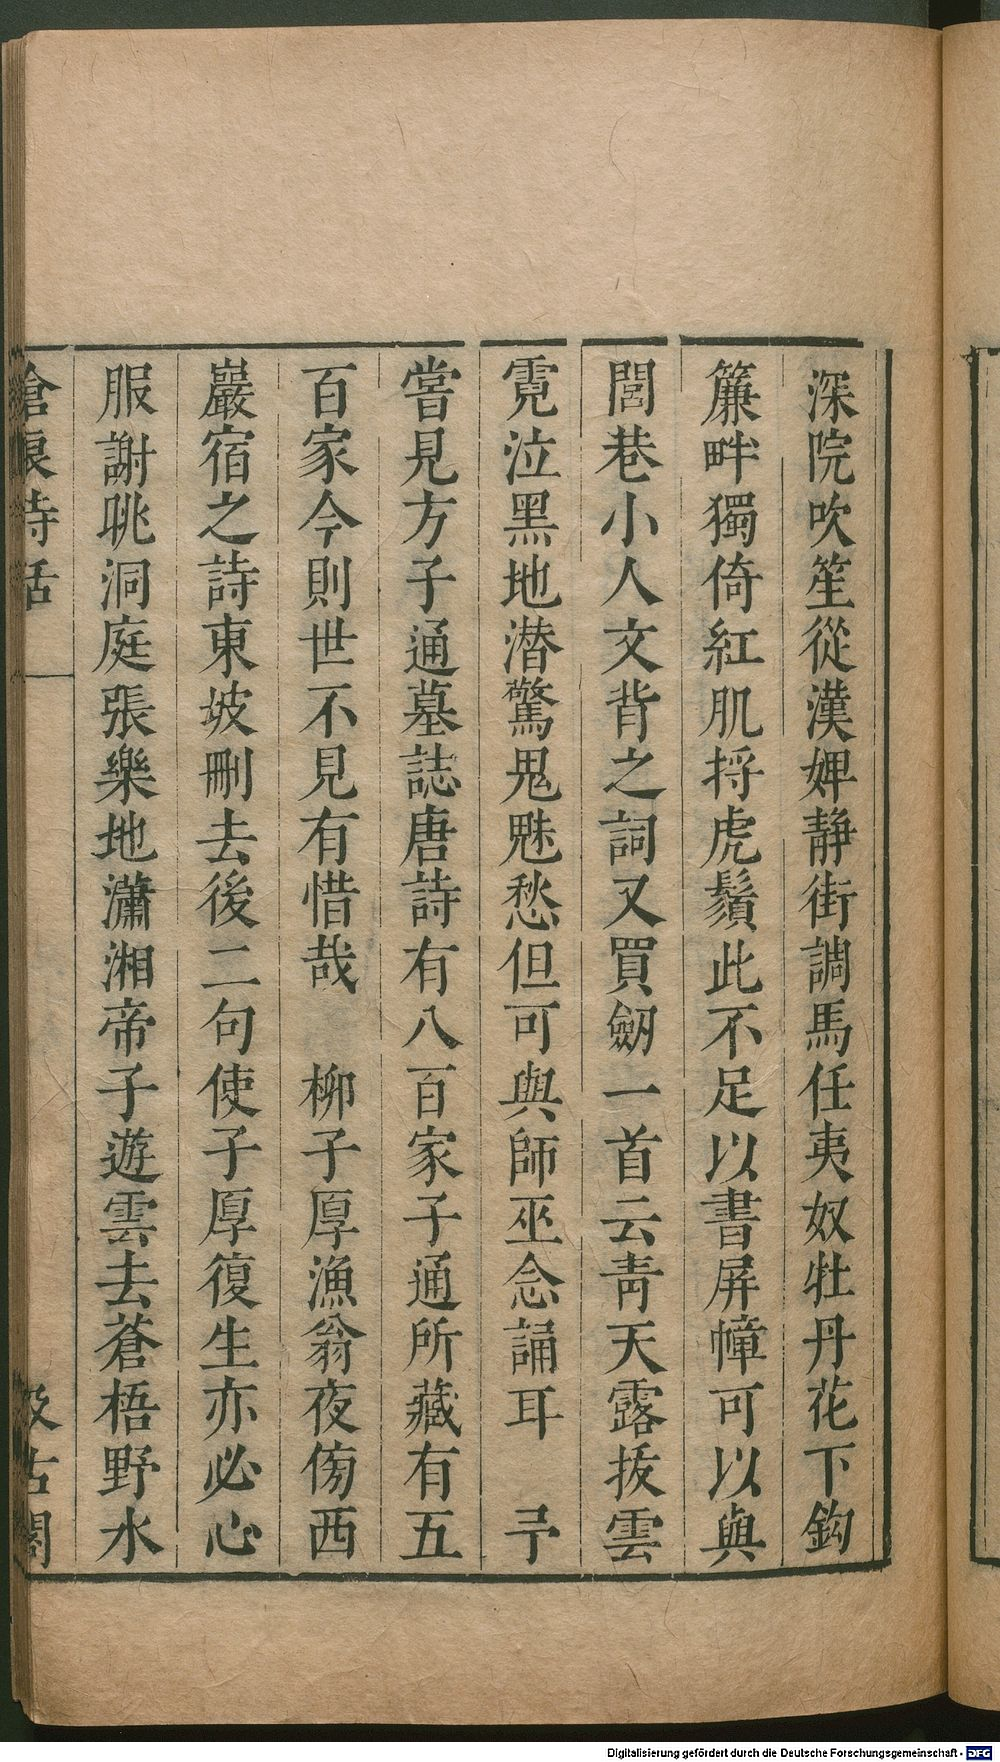 深院吹笙從漢婢靜街調馬任夷奴牡丹花下鈎
簾畔獨倚紅肌捋虎鬚此不足以書屏幛可以與
閭巷小人文背之詞又買劒一首云靑天露拔雲
霓泣黑地潜驚鬼魅愁但可與師巫念誦耳　予
嘗見方子通墓誌唐詩有八百家子通所藏有五
百家今則世不見有惜哉　柳子厚漁翁夜傍西
巖宿之詩東坡刪去後二句使子厚復生亦必心
服謝眺洞庭張樂地瀟湘帝子遊雲去蒼梧野水
滄浪詩話
汲古閣
Digitalisierung gefördert durch die Deutsche Forschungsgemeinschaft - DFG